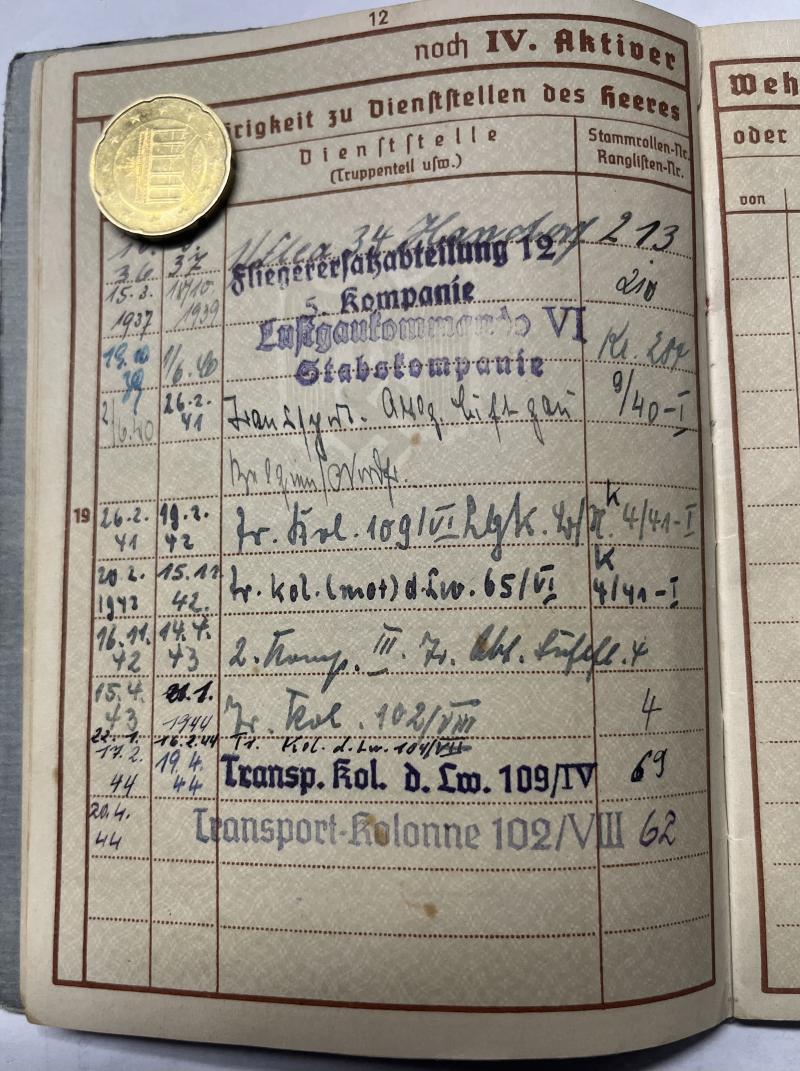 12
noch IV. Aktiver
örigkeit zu Dienststellen des Heeres
Dienststelle
(Truppenteil usw.)
Stammrollen-Nr.
Ranglisten-Nr.
36 37 34 Handorf 213
Fliegerersatzabteilung 12
15.3. 1937 18/10. 1939 5. Kompanie
Luftgaukommando VI
19.10 39 1/6.40 Stabskompanie Kr. 207
2/6.40 26.2. 41 Luftgau 9/40-I
Belgien/Nordfr.
19 26.2. 41 19.2. 42 Tr. Kol. 109/VI K 4/41-I
20.2. 1942 15.11 42. Tr. Kol. (mot) d. Lw. 65/VI K 4/41-I
16.11. 42 14.4. 43 2. Komp. III. Tr. Abt. Luftfl. 4
15.4. 43 21.1. 1944 Tr. Kol. 102/VIII 4
22.1. 16.2.44 Tr. Kol. d. Lw. 104/VII
17.2. 44 19.4. 44 Transp. Kol. d. Lw. 109/IV 69
20.4. 44 Transport-Kolonne 102/VIII 62
Weh
oder
von